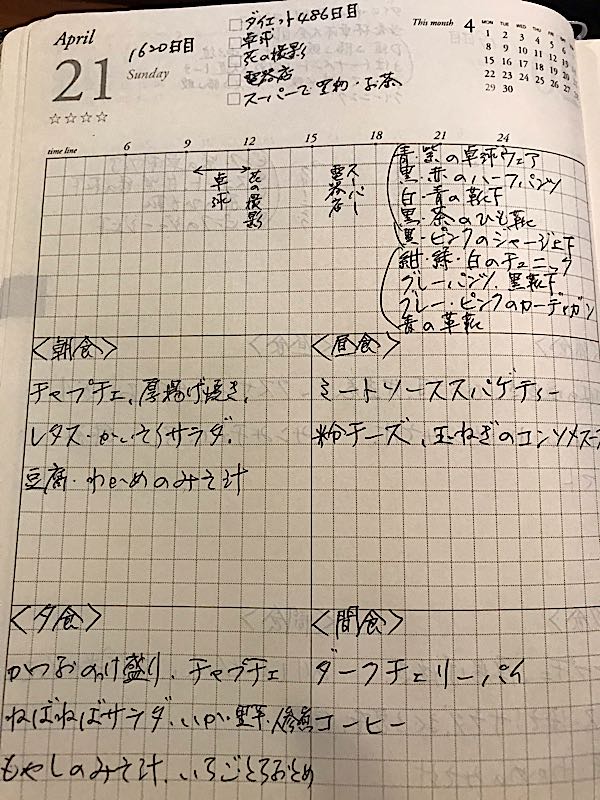 April
21
Sunday
☆☆☆☆
1620日目
□ ダイエット486日目
□ 卓球
□ 花の撮影
□ 電器店
□ スーパーで果物・お茶
This month 4
MON TUE WED THU FRI SAT
1 2 3 4 5 6
8 9 10 11 12 13
15 16 17 18 19
22 23 24 25 26
29 30
time line 6 9 12 15 18 21 24
卓球
花の撮影
電器店
スーパー
青・紫の卓球ウェア
黒・赤のハーフパンツ
白・青の靴下
黒・茶のひも靴
黒・ピンクのジャージ上下
紺・緑・白のチュニック
グレーパンツ、黒靴下
グレー・ピンクのカーディガン
青の革靴
<朝食>
チャプチェ、厚揚げ焼き、
レタス・かいそうサラダ、
豆腐・わかめのみそ汁
<昼食>
ミートソーススパゲティー
粉チーズ、玉ねぎのコンソメスー
<夕食>
かつおのづけ盛り、チャプチェ
ねばねばサラダ、いか・里芋・人参煮
もやしのみそ汁、いちごとろおとめ
<間食>
ダークチェリーパイ
コーヒー